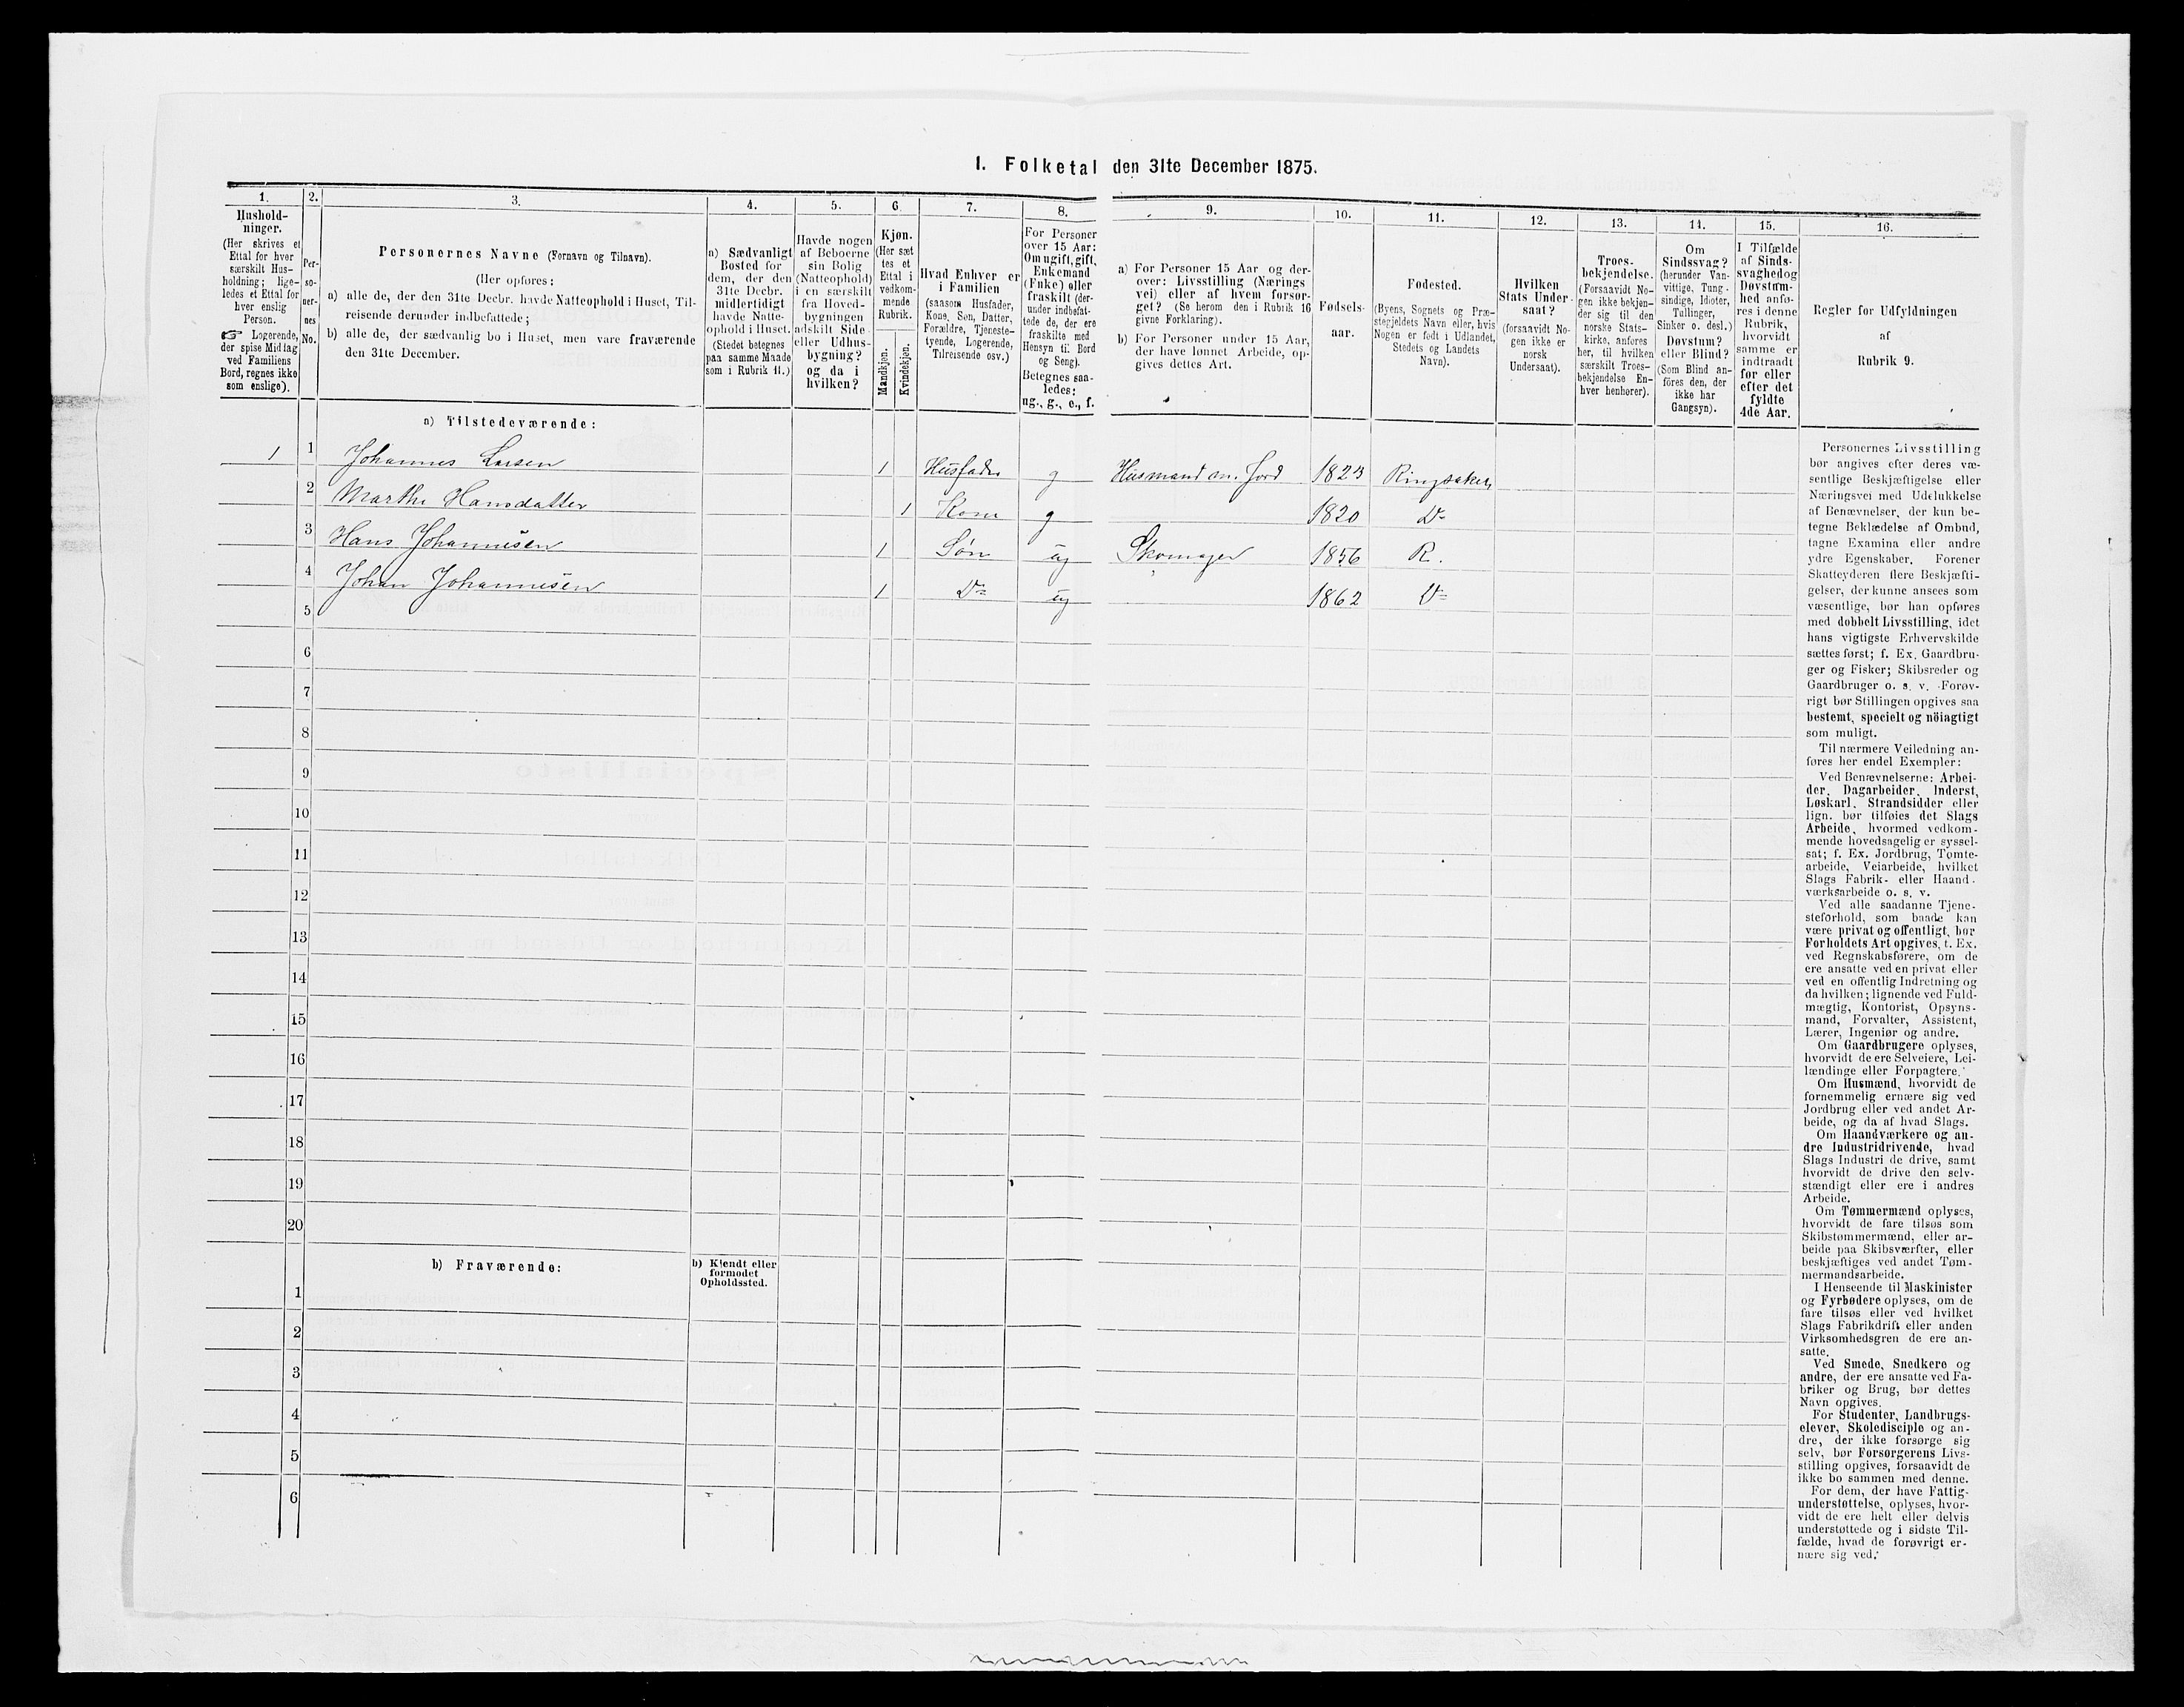 I. Folketal den 31te December 1875.
1.
Hushold-
ninger.
(Her skrives et
Ettal for hver
særskilt Hus-
holdning; lige-
ledes et Ettal for
hver enslig
Person.
☞ Logerende,
der spise Middag
ved Familiens
Bord, regnes ikke
som enslige).
2.
Per-
so-
ner-
nes
No.
3.
Personernes Navne (Fornavn og Tilnavn).
(Her opføres:
a) alle de, der den 31te Decbr. havde Natteophold i Huset, Til-
reisende derunder indbefattede;
b) alle de, der sædvanlig bo i Huset, men vare fraværende
den 31te December.
4.
a) Sædvanligt
Bosted for
dem, der den
31te Decbr.
midlertidigt
havde Natte-
ophold i Huset.
(Stedet betegnes
paa samme Maade
som i Rubrik 11.)
5.
Havde nogen
af Beboerne
sin Bolig
(Natteophold)
i en særskilt
fra Hoved-
bygningen
adskilt Side-
eller Udhus-
bygning?
og da i
hvilken?
6.
Kjøn.
(Her sæt
tes et
Ettal i
vedkom-
mende
Rubrik.
Mandkjøn.
Kvindekjøn.
7.
Hvad Enhver er
i Familien
(saasom Husfader,
Kone, Søn, Datter,
Forældre, Tjeneste-
tyende, Logerende,
Tilreisende osv.)
8.
For Personer
over 15 Aar:
Om ugift, gift,
Enkemand
(Enke) eller
fraskilt (der-
under indbefat-
tede de, der ere
fraskilte med
Hensyn til Bord
og Seng).
Betegnes saa-
ledes:
ug., g., e., f.
9.
a) For Personer 15 Aar og der-
over: Livsstilling (Nærings
vei) eller af hvem forsør-
get? (Se herom den i Rubrik 16
givne Forklaring).
b) For Personer under 15 Aar,
der have lønnet Arbeide, op-
gives dettes Art.
10.
Fødsels-
aar.
11.
Fødested.
(Byens, Sognets og Præ-
stegjeldets Navn eller, hvis
Nogen er født i Udlandet,
Stedets og Landets
Navn).
12.
Hvilken
Stats Under-
saat?
(forsaavidt No-
gen ikke er
norsk
Undersaat).
13.
Troes-
bekjendelse.
(Forsaavidt No-
gen ikke bekjen-
der sig til den
norske Stats-
kirke, anføres
her, til hvilken
særskilt Troes-
bekjendelse En-
hver henhører).
14.
Om
Sindssvag?
(herunder Van-
vittige, Tung-
sindige, Idioter,
Tullinger,
Sinker o. desl.)
Døvstum?
eller Blind?
(Som Blind an-
föres den, der
ikke har
Gangsyn).
15.
I Tilfælde
af Sinds-
svaghed og
Døvstum-
hed anfø-
res i denne
Rubrik,
hvorvidt
samme er
indtraadt
før eller
efter det
fyldte
4de Aar.
16.
Regler for Udfyldningen
af
Rubrik 9.
a) Tilstedeværende:
1 1 Johannes Larsen 1 Husfader g Husmand m. Jord 1823 Ringsaker
2 Marthe Hansdatter 1 Kone g 1820 Do
3 Hans Johannesen 1 Søn ug Skomager 1856 R.
4 Johan Johannesen 1 Do ug 1862 Do
5
6
7
8
9
10
11
12
13
14
15
16
17
18
19
20
b) Fraværende:
b) Kjendt eller
formodet
Opholdssted.
1
2
3
4
5
6
Personernes Livsstilling
bør angives efter deres væ-
sentlige Beskjæftigelse eller
Næringsvei med Udelukkelse
af Benævnelser, der kun be-
tegne Beklædelse af Ombud,
tagne Examina eller andre
ydre Egenskaber. Forener
Skatteyderen flere Beskjæfti-
gelser, der kunne ansees som
væsentlige, bør han opføres
med dobbelt Livsstilling, idet
hans vigtigste Erhvervskilde
sættes først; f. Ex. Gaardbru-
ger og Fisker; Skibsreder og
Gaardbruger o. s. v. Forøv-
rigt bør Stillingen opgives saa
bestemt, specielt og nöiagtigt
som muligt.
Til nærmere Veiledning an-
føres her endel Exempler:
Ved Benævnelserne: Arbei-
der, Dagarbeider, Inderst,
Løskarl, Strandsidder eller
lign. bør tilføies det Slags
Arbeide, hvormed vedkom-
mende hovedsagelig er syssel-
sat; f. Ex. Jordbrug, Tømte-
arbeide, Veiarbeide, hvilket
Slags Fabrik- eller Haand-
værksarbeide o. s. v.
Ved alle saadanne Tjene-
steforhold, som baade kan
være privat og offentligt, bør
Forholdets Art opgives, t. Ex.
ved Regnskabsførere, om de
ere ansatte ved en privat eller
ved en offentlig Indretning og
da hvilken; lignende ved Fuld-
mægtig, Kontorist, Opsyns-
mand, Forvalter, Assistent,
Lærer, Ingeniør og andre.
Om Gaardbrugere oplyses,
hvorvidt de ere Selveiere, Lei-
lændinge eller Forpagtere.
Om Husmænd, hvorvidt de
fornemmelig ernære sig ved
Jordbrug eller ved andet Ar-
beide, og da af hvad Slags.
Om Haandværkere og an-
dre Industridrivende, hvad
Slags Industri de drive, samt
hvorvidt de drive den selv-
stændigt eller ere i andres
Arbeide.
Om Tømmermænd oplyses,
hvorvidt de fare tilsøs som
Skibstømmermænd, eller ar-
beide paa Skibsværfter, eller
beskjæftiges ved andet Tøm-
mermandsarbeide.
I Henseende til Maskinister
og Fyrbødere oplyses, om de
fare tilsøs eller ved hvilket
Slags Fabrikdrift eller anden
Virksomhedsgren de ere an-
satte.
Ved Smede, Snedkere og
andre, der ere ansatte ved Fa-
briker og Brug, bør dettes
Navn opgives.
For Studenter, Landbrugs-
elever, Skoledisciple og an-
dre, der ikke forsørge sig
selv, bør Forsørgerens Livs-
stilling opgives, forsaavidt de
ikke bo sammen med denne.
For dem, der have Fattig-
understøttelse, oplyses, hvor-
vidt de ere helt eller delvis
understøttede og i sidste Til-
fælde, hvad de forøvrigt er-
nære sig ved.